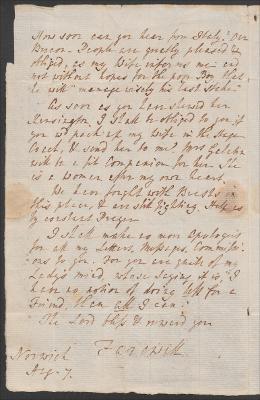 How soon can you hear from Italy? Our
Brecon-People are greatly pleased &
obliged, as my Wife informs me: and
not without hopes for the poor Boy
he will "manage wisely his last Stake."
As soon as you have shewed her
Kensington, I shall be obliged to you if
you will pack up my Wife in the Stage
Coach, & send her to me. Mrs
will be a fit Companion for her. She
is a woman after my own heart.
We have fought with Beasts in
this place, & are still fighting. Help us
by constant Prayer.
I shall make no more Apologies
for all my Letters, Messages, Commissi-
ons to you. For you are quite of my
Lady's mind, whose saying it is, "I
have no notion of doing less for a
Friend, than all I can."
The Lord bless & reward you
Farewell
Norwich
Aug. 7.